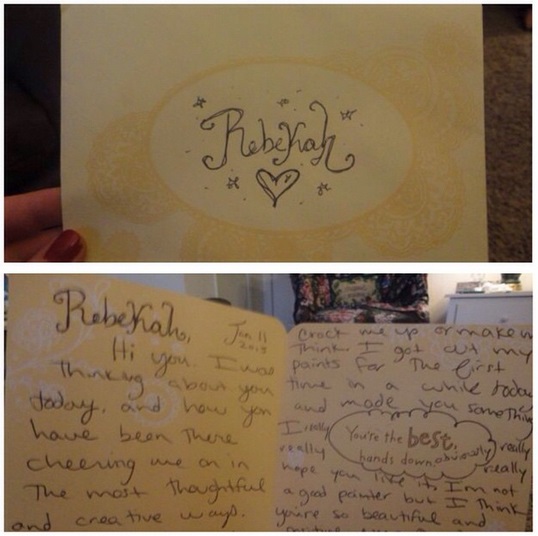 Rebekah
Rebekah,
Jan 11
2013
Hi you. I was
thinking about you
today, and how you
have been there
cheering me on in
the most thoughtful
and creative ways.
crack me up or make m
think I got out my
paints for the first
time in a while today
and made you something
I really
really
You're the best,
hands down, obviously
really
really
hope you like it. I'm not
a good painter but I think
you're so beautiful and